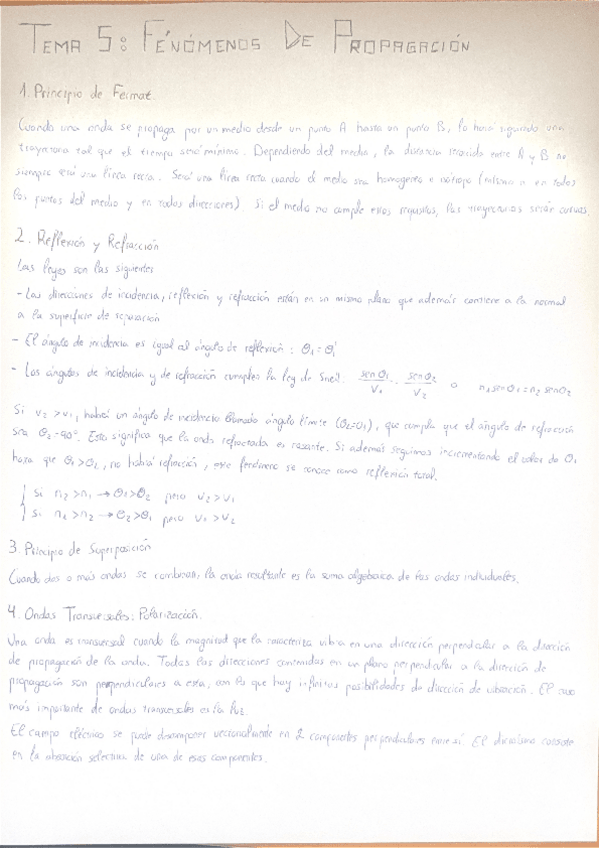 TEMA 5: FENÓMENOS DE PROPAGACIÓN
1. Principio de Fermat.
Cuando una onda se propaga por un medio desde un punto A hasta un punto B, lo hará siguiendo una
trayectoria tal que el tiempo será mínimo. Dependiendo del medio, la distancia recorrida entre A y B no
siempre será una línea recta. Será una línea recta cuando el medio sea homogéneo e isótropo (mismo n en todos
los puntos del medio y en todas direcciones). Si el medio no cumple estos requisitos, las trayectorias serán curvas.
2. Reflexión y Refracción
Las leyes son las siguientes
- Las direcciones de incidencia, reflexión y refracción están en un mismo plano que además contiene a la normal
a la superficie de separación
- El ángulo de incidencia es igual al ángulo de reflexión: θ₁ = θ₁'
- Los ángulos de incidencia y de refracción cumplen la ley de Snell. sen θ₁/V₁ = sen θ₂/V₂ o n₁ sen θ₁ = n₂ sen θ₂
Si v₂ > v₁, habrá un ángulo de incidencia llamado ángulo límite, que cumpla que el ángulo de refracción
sea θ₂ = 90º. Esto significa que la onda refractada es rasante. Si además seguimos incrementando el valor de θ₁
hará que θ₁ > θ₂, no habrá refracción, este fenómeno se conoce como reflexión total.
Si n₂ > n₁ → θ₁ > θ₂ pero v₂ > v₁
Si n₁ > n₂ → θ₂ > θ₁ pero v₁ > v₂
3. Principio de Superposición
Cuando dos o más ondas se combinan, la onda resultante es la suma algebraica de las ondas individuales.
4. Ondas Transversales: Polarización.
Una onda es transversal cuando la magnitud que la caracteriza vibra en una dirección perpendicular a la dirección
de propagación de la onda. Todas las direcciones contenidas en un plano perpendicular a la dirección de
propagación son perpendiculares a esta, con lo que hay infinitas posibilidades de dirección de vibración. El caso
más importante de ondas transversales es la luz.
El campo eléctrico se puede descomponer vectorialmente en 2 componentes perpendiculares entre sí. El dicroísmo consiste
en la absorción selectiva de una de esas componentes.